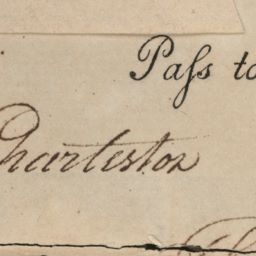 Paſs to
Charleston